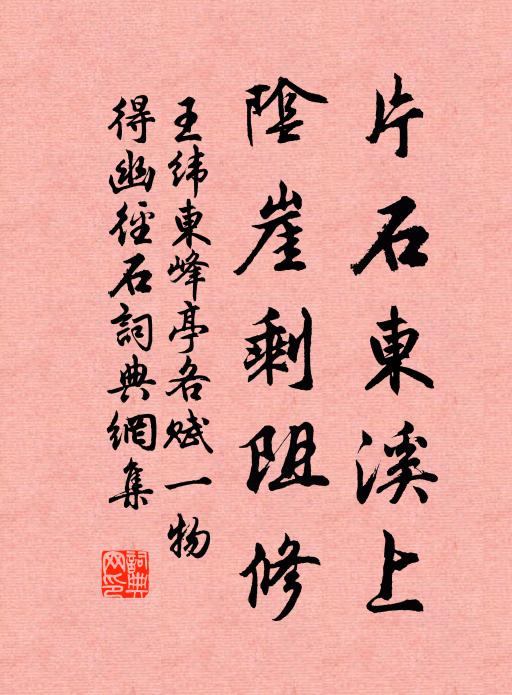 片石東溪上
陰崖剩阻修
王緯東峰亭各賦一物
得幽徑石詞典網集
詞典網印